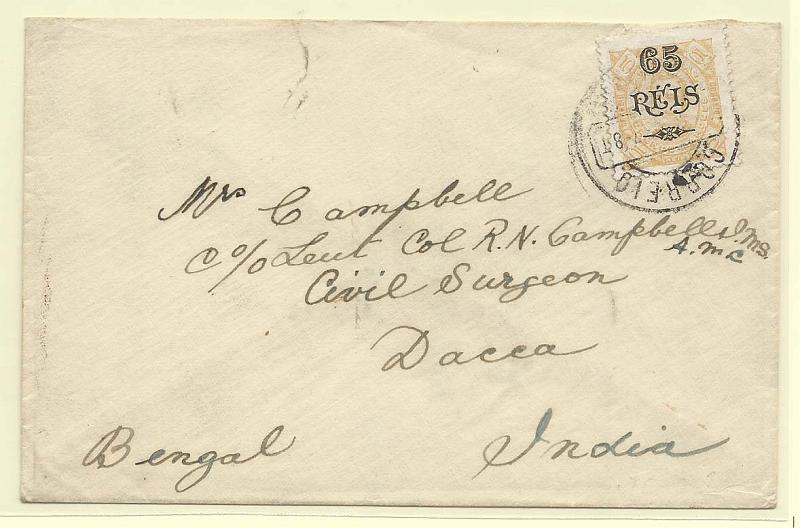 65
RÉIS
CORREIO
Mrs Campbell
c/o Leut Col R.N. Campbell I.M.S.
A.M.C
Civil Surgeon
Dacca
Bengal India